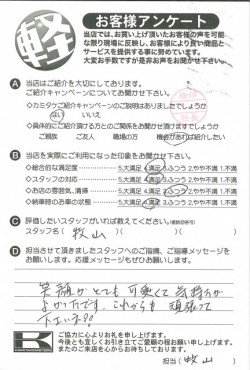 軽
お客様アンケート
当店では、お買い上げ頂いたお客様の声を可能
な限り現場に反映し、お客様により良い商品と
サービスを提供する事に努めています。
大変お手数ですが是非お声をお聞かせ下さい。
A 当店はご紹介を大切にしております。
ご紹介キャンペーンについてお聞かせ下さい。
◇カミタケご紹介キャンペーンのご説明はありましたでしょうか
はい いいえ
◇具体的にご紹介頂ける方とのご関係をお聞かせ頂けますでしょうか
ご親族 ご友人 職場の方 機会があれば紹介したい
B 当店を実際にご利用になった印象をお聞かせ下さい。
◇総合的な満足度 5.大満足 4.満足 3.ふつう 2.やや不満 1.不満
◇スタッフの対応 5.大満足 4.満足 3.ふつう 2.やや不満 1.不満
◇お店の雰囲気、清掃 5.大満足 4.満足 3.ふつう 2.やや不満 1.不満
◇納車時のお車の状態 5.大満足 4.満足 3.ふつう 2.やや不満 1.不満
C 評価したいスタッフがいれば教えてください。
スタッフ名( 牧山 )
D 担当させて頂きましたスタッフへのご指摘、ご応援メッセージを
お願いします。応援メッセージもぜひお願いします。
笑顔がとても可愛くて気持ちが
よかったです。これからも頑張って
下さいネ!!
K
ご協力に心よりお礼を申し上げます。
今後とも宜しくお引き立てご愛顧の程お願い申し上げます。
またのご来店を心からお待ちしております。
担当( 牧山 )